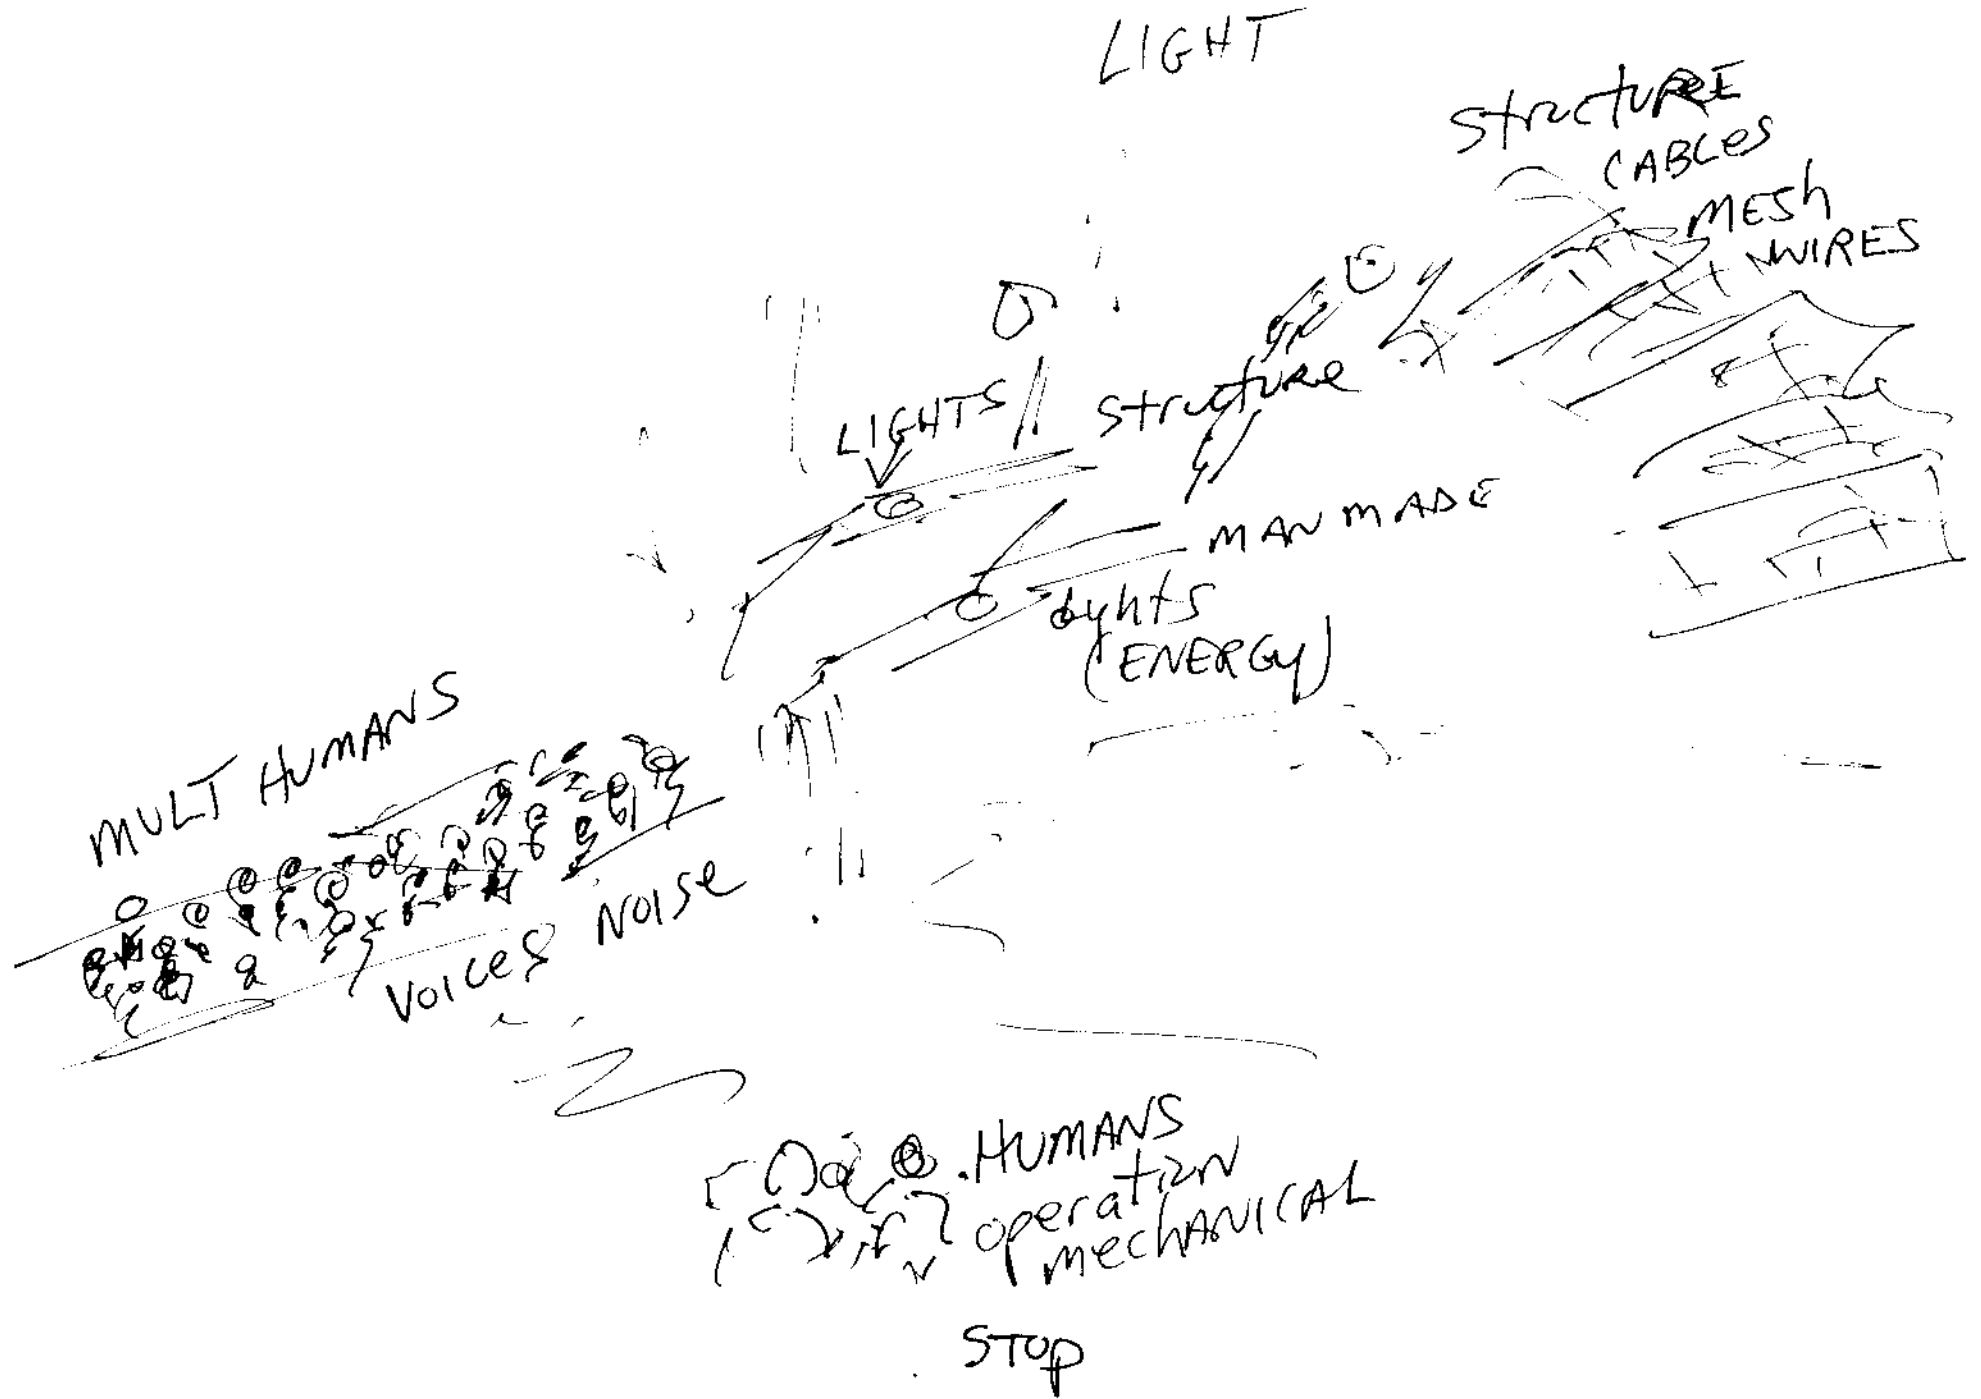 LIGHT
StructuRE
CABLes
MESh
WIRES
LIGHTS
StructuRe
MANMADE
Lights
(ENERGy)
MULT HUMANS
VOICES NOISe
HUMANS
operation
mechANICAL
STOP